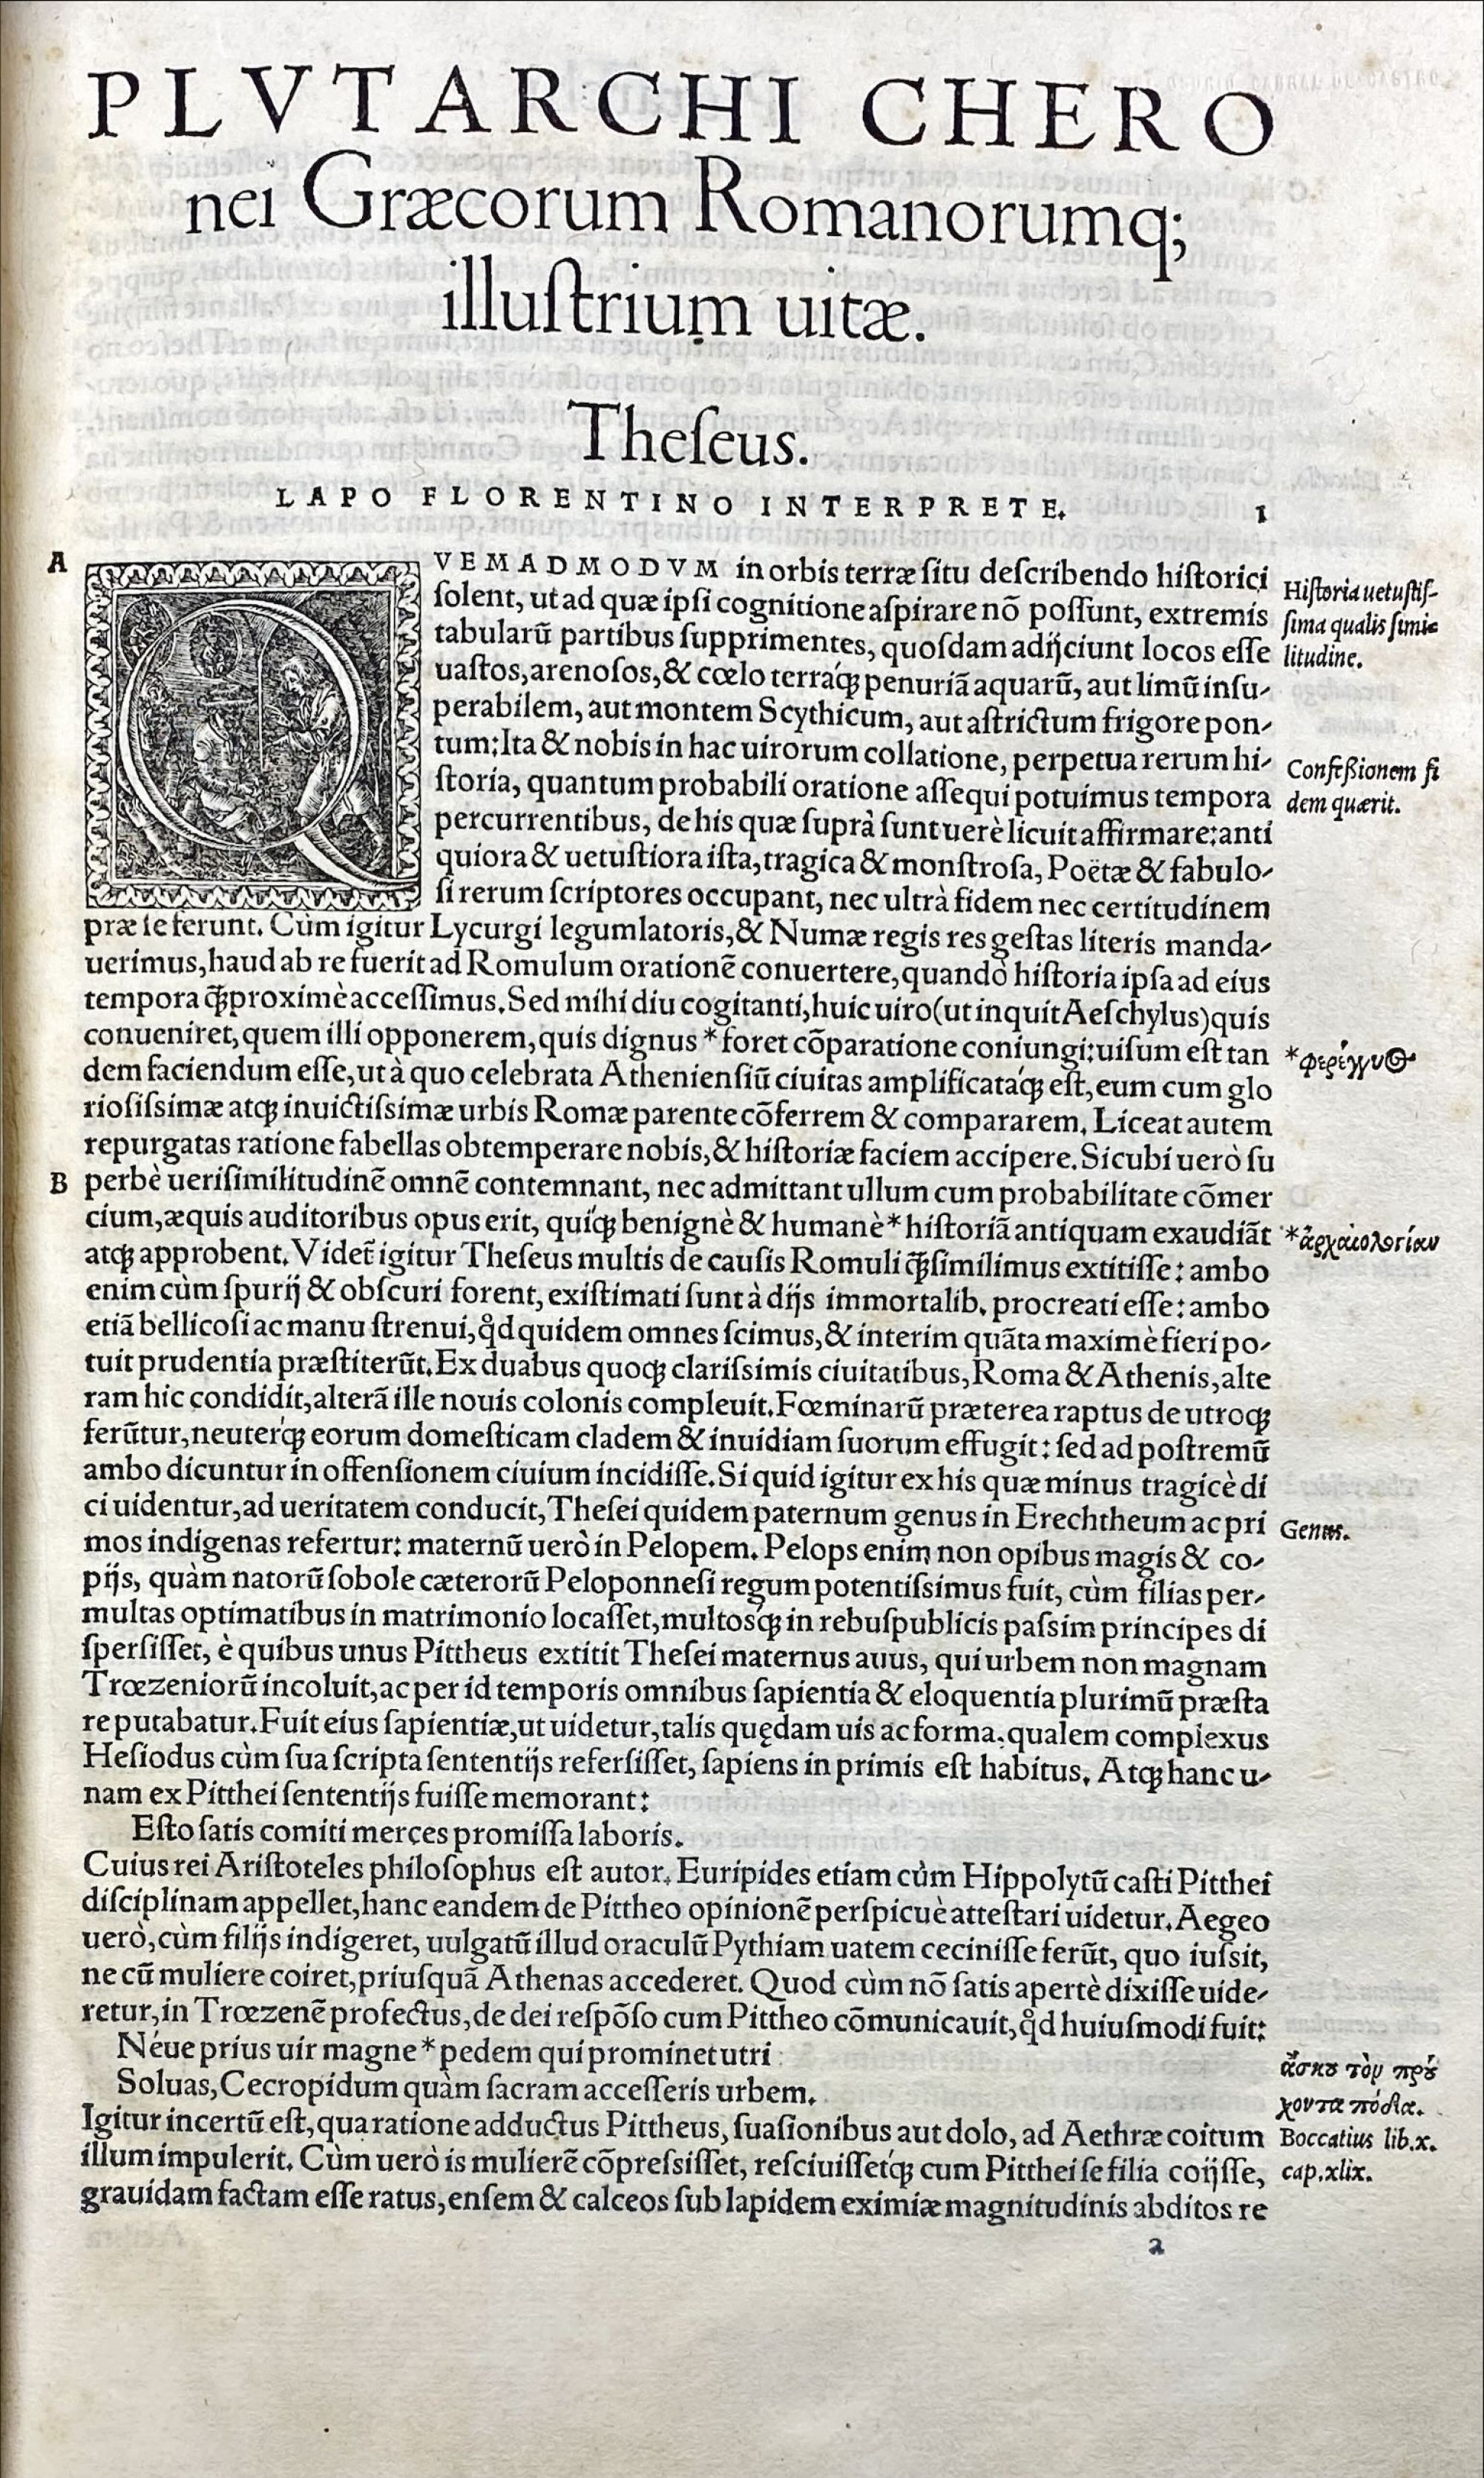 PLVTARCHI CHERO
nei Græcorum Romanorumq;
illuſtrium uitæ.
Theſeus.
LAPO FLORENTINO INTERPRETE.
1
A
QVEMADMODVM in orbis terræ ſitu deſcribendo hiſtorici
ſolent, ut ad quæ ipſi cognitione aſpirare nõ poſſunt, extremis
tabularũ partibus ſupprimentes, quoſdam adijciunt locos eſſe
uaſtos, arenoſos, & cœlo terráq; penuriã aquarũ, aut limũ inſu-
perabilem, aut montem Scythicum, aut aſtrictum frigore pon-
tum: Ita & nobis in hac uirorum collatione, perpetua rerum hi-
ſtoria, quantum probabili oratione aſſequi potuimus tempora
percurrentibus, de his quæ ſuprà ſunt uerè licuit affirmare: anti
quiora & uetuſtiora iſta, tragica & monſtroſa, Poëtæ & fabulo-
ſi rerum ſcriptores occupant, nec ultrà fidem nec certitudinem
præ ſe ferunt. Cùm igitur Lycurgi legumlatoris, & Numæ regis res geſtas literis manda-
uerimus, haud ab re fuerit ad Romulum orationẽ conuertere, quandò hiſtoria ipſa ad eius
tempora q̃ proximè acceſſimus. Sed mihi diu cogitanti, huic uiro (ut inquit Aeſchylus) quis
conueniret, quem illi opponerem, quis dignus * foret cõparatione coniungi: uiſum eſt tan
dem faciendum eſſe, ut à quo celebrata Athenienſiũ ciuitas amplificatáq; eſt, eum cum glo
rioſiſsimæ atq; inuictiſsimæ urbis Romæ parente cõferrem & compararem. Liceat autem
repurgatas ratione fabellas obtemperare nobis, & hiſtoriæ faciem accipere. Sicubi uerò ſu
B
perbè ueriſimilitudinẽ omnẽ contemnant, nec admittant ullum cum probabilitate cõmer
cium, æquis auditoribus opus erit, quiq́; benignè & humanè * hiſtoriã antiquam exaudiãt
atq; approbent. Videt̃ igitur Theſeus multis de cauſis Romuli q̃ſimilimus extitiſſe: ambo
enim cùm ſpurij & obſcuri forent, exiſtimati ſunt à dijs immortalib. procreati eſſe: ambo
etiã bellicoſi ac manu ſtrenui, qd̃ quidem omnes ſcimus, & interim quãta maximè fieri po-
tuit prudentia præſtiterũt. Ex duabus quoq; clariſsimis ciuitatibus, Roma & Athenis, alte
ram hic condidit, alterã ille nouis colonis compleuit. Fœminarũ præterea raptus de utroq;
ferũtur, neuterq́; eorum domeſticam cladem & inuidiam ſuorum effugit: ſed ad poſtremũ
ambo dicuntur in offenſionem ciuium incidiſſe. Si quid igitur ex his quæ minus tragicè di
ci uidentur, ad ueritatem conducit, Theſei quidem paternum genus in Erechtheum ac pri
mos indigenas refertur: maternũ uerò in Pelopem. Pelops enim non opibus magis & co-
pijs, quàm natorũ ſobole cæterorũ Peloponneſi regum potentiſsimus fuit, cùm filias per-
multas optimatibus in matrimonio locaſſet, multosq́; in rebuſpublicis paſsim principes di
ſperſiſſet, è quibus unus Pittheus extitit Theſei maternus auus, qui urbem non magnam
Trœzeniorũ incoluit, ac per id temporis omnibus ſapientia & eloquentia plurimũ præſta
re putabatur. Fuit eius ſapientiæ, ut uidetur, talis quędam uis ac forma, qualem complexus
Heſiodus cùm ſua ſcripta ſententijs referſiſſet, ſapiens in primis eſt habitus. Atq; hanc u-
nam ex Pitthei ſententijs fuiſſe memorant:
Eſto ſatis comiti merces promiſſa laboris.
Cuius rei Ariſtoteles philoſophus eſt autor. Euripides etiam cùm Hippolytũ caſti Pitthei
diſciplinam appellet, hanc eandem de Pittheo opinionẽ perſpicuè atteſtari uidetur. Aegeo
uerò, cùm filijs indigeret, uulgatũ illud oraculũ Pythiam uatem ceciniſſe ferũt, quo iuſsit,
ne cũ muliere coiret, priuſquã Athenas accederet. Quod cùm nõ ſatis apertè dixiſſe uide-
retur, in Trœzenẽ profectus, de dei reſpõſo cum Pittheo cõmunicauit, qd̃ huiuſmodi fuit:
Néue prius uir magne * pedem qui prominet utri
Soluas, Cecropidum quàm ſacram acceſſeris urbem.
Igitur incertũ eſt, qua ratione adductus Pittheus, ſuaſionibus aut dolo, ad Aethræ coitum
illum impulerit. Cùm uerò is mulierẽ cõpreſsiſſet, reſciuiſſetq́; cum Pitthei ſe filia coijſſe,
grauidam factam eſſe ratus, enſem & calceos ſub lapidem eximiæ magnitudinis abditos re
a
Hiſtoria uetuſtiſ-
ſima qualis ſimi-
litudine.
Confeßionem fi
dem quærit.
*φερέγγυος
*ἀρχαιολογίαν
Genus.
ἄσκου τὸν πρού
χοντα πόδα.
Boccatius lib.x.
cap.xlix.